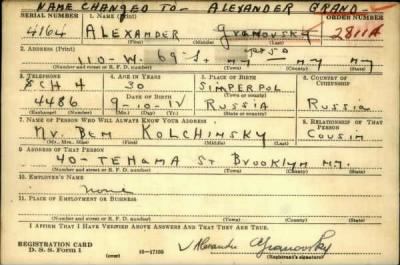 NAME CHANGED TO - ALEXANDER GRAND -
SERIAL NUMBER 1. NAME (Print) ORDER NUMBER
4164 ALEXANDER Granovsky 2811A
(First) (Middle) (Last)
2. ADDRESS (Print)
110-W. 69- St. NY - NY - NY
(Number and street or R. F. D. number) (Town) (County) (State)
3. TELEPHONE 4. AGE IN YEARS 5. PLACE OF BIRTH 6. COUNTRY OF CITIZENSHIP
SCH 4 30 SIMPERPOL
DATE OF BIRTH
4486 9-10-10 RUSSIA RUSSIA
(Exchange) (Number) (Mo.) (Day) (Yr.) (State or country)
7. NAME OF PERSON WHO WILL ALWAYS KNOW YOUR ADDRESS 8. RELATIONSHIP OF THAT PERSON
Mr. BEN KOLCHINSKY COUSIN
(Mr., Mrs., Miss) (First) (Middle) (Last)
9. ADDRESS OF THAT PERSON
40- TEHAMA St BROOKLYN NY.
(Number and street or R. F. D. number) (Town) (County) (State)
10. EMPLOYER'S NAME
none
11. PLACE OF EMPLOYMENT OR BUSINESS
(Number and street or R. F. D. number) (Town) (County) (State)
I AFFIRM THAT I HAVE VERIFIED ABOVE ANSWERS AND THAT THEY ARE TRUE.
REGISTRATION CARD
D. S. S. Form 1 (over) 16-17105 Alexander Granovsky
(Registrant's signature)